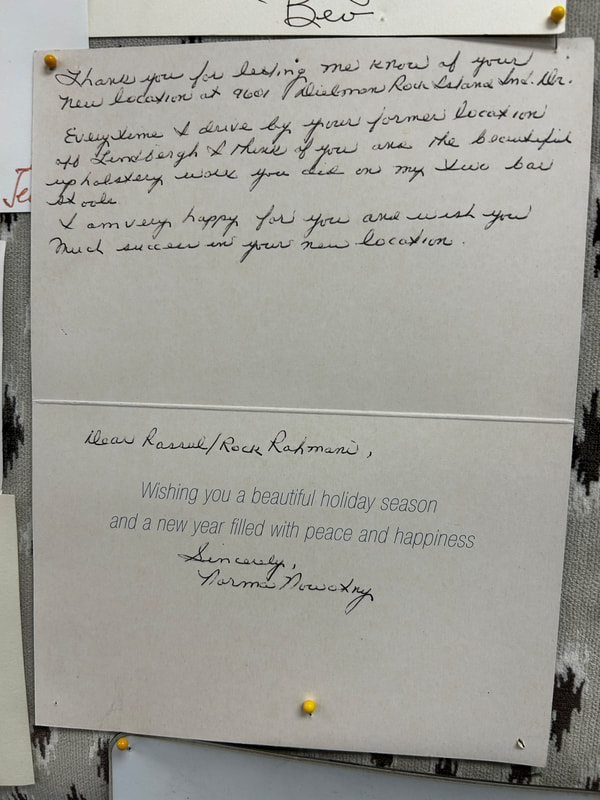 Bev
Thank you for letting me know of your
new location at 9601 Dielman Rock Island Ind. Dr.
Everytime I drive by your former location
off Lindbergh I think of you and the beautiful
upholstery work you did on my two bar
stools
I am very happy for you and wish you
much success in your new location.
Dear Rassul/Rock Rahmani,
Wishing you a beautiful holiday season
and a new year filled with peace and happiness
Sincerely,
Norma Nowotny